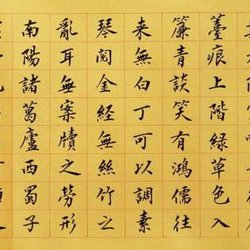 薹痕上階綠草色入
簾青談笑有鴻儒往
来無白丁可以調素
琴閱金經無絲竹之
亂耳無案牘之勞形
南陽諸葛廬西蜀子